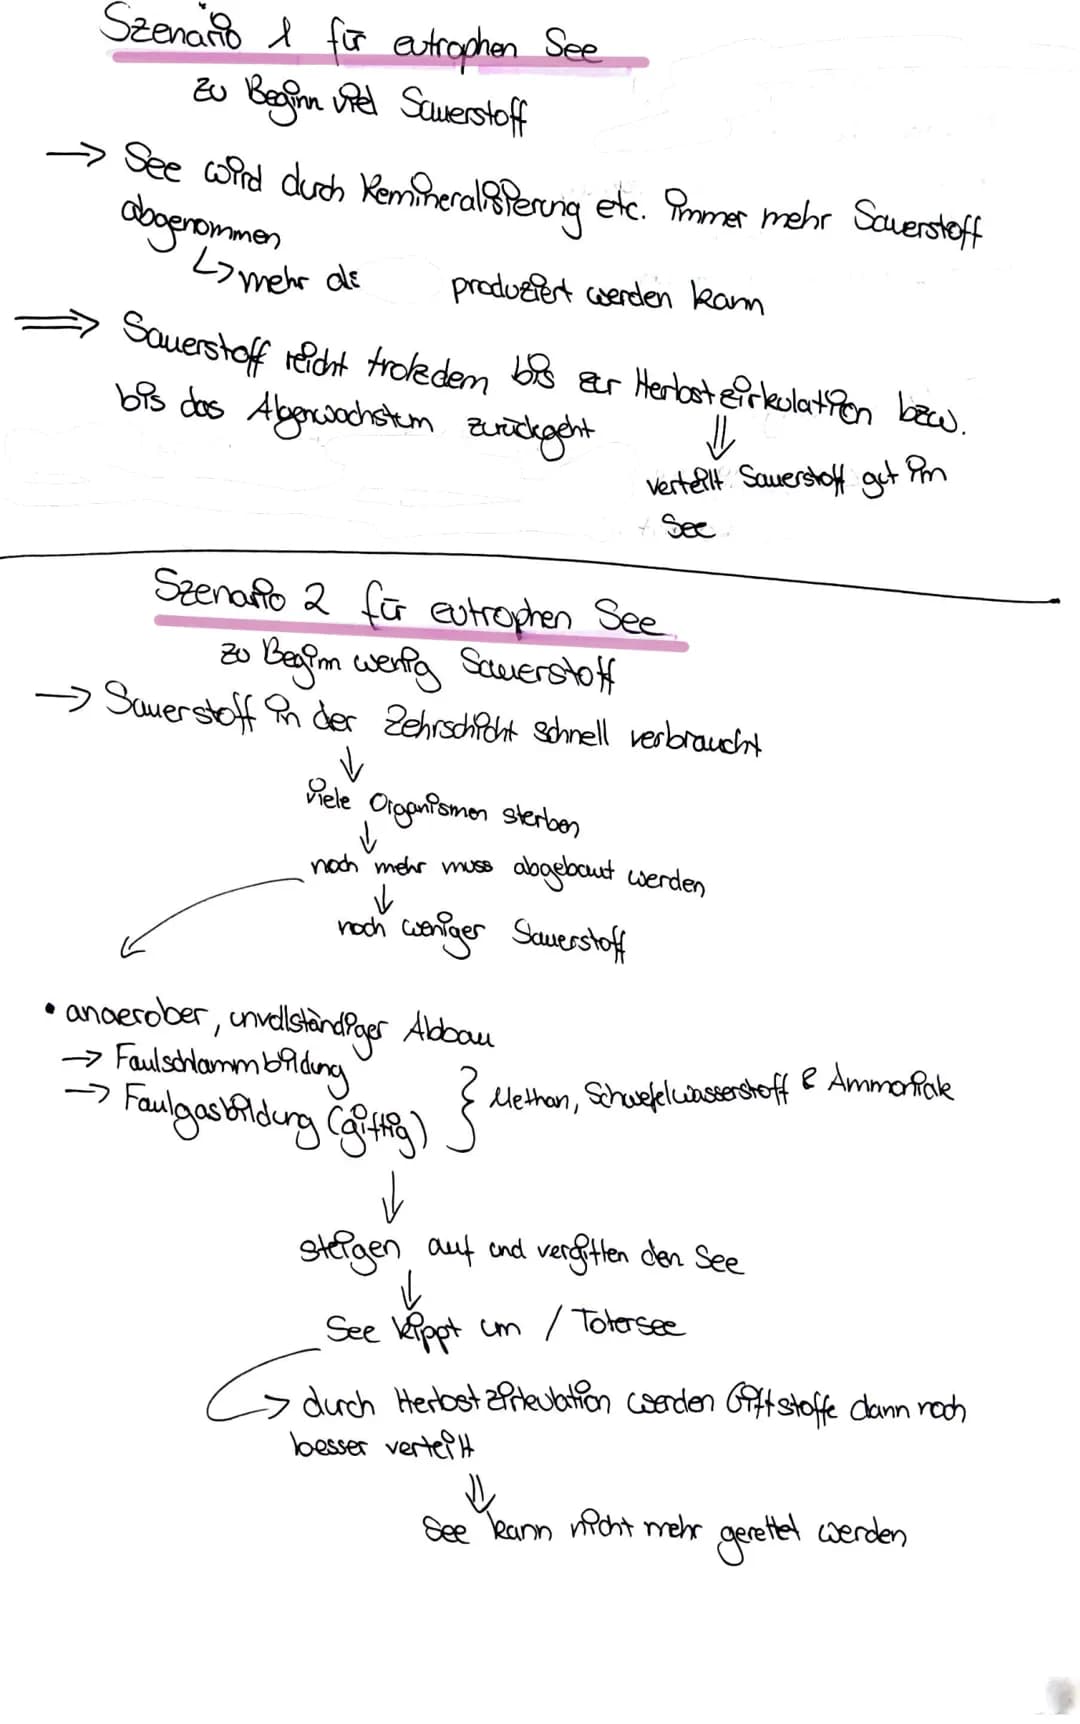 Szenario 1 für eutrophen See
zu Beginn viel Sauerstoff
→ See wird durch Remineralisierung etc. immer mehr Sauerstoff
abgenommen
↳ mehr als produziert werden kann
⇒ Sauerstoff reicht trotzdem bis zur Herbstzirkulation bzw.
bis das Algenwachstum zurückgeht
⇓
verteilt Sauerstoff gut im
See
Szenario 2 für eutrophen See
zu Beginn wenig Sauerstoff
→ Sauerstoff in der Zehrschicht schnell verbraucht
↓
viele Organismen sterben
↓
noch mehr muss abgebaut werden
↓
noch weniger Sauerstoff
• anaerober, unvollständiger Abbau
→ Faulschlammbildung
→ Faulgasbildung (giftig) } Methan, Schwefelwasserstoff & Ammoniak
↓
steigen auf und vergiften den See
↓
See kippt um / Totersee
→ durch Herbstzirkulation werden Giftstoffe dann noch
besser verteilt
⇓
See kann nicht mehr gerettet werden